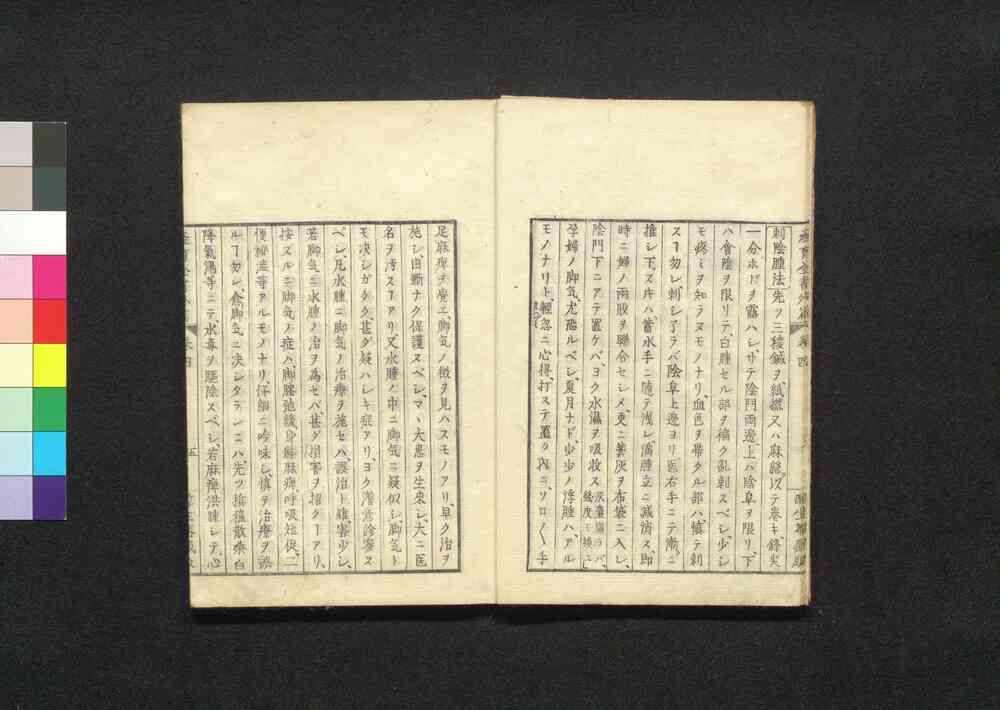 刺陰腫法 先ツ三稜鍼ヲ、紙撚又ハ麻絲ニ以テ巻キ、鋒尖
一分ホドヲ露ハシ、サテ陰門両邊、上ハ陰阜ヲ限リ、下
ハ會陰ヲ限リテ、白腫セル部ヲ偏ク亂刺スベシ、少シ
モ疼ミヲ知ラヌモノナリ、血色ヲ帯タル部ハ慎テ刺
スヿ勿レ、刺シ了ラバ、陰阜上邊ヨリ医右手ニテ漸々ニ
推シ下スキハ、蓄水手ニ随テ洩レ、満腫立ニ減消ス、即
時ニ婦ノ両股ヲ聯合セシメ、更ニ藁灰ヲ布袋ニ入レ、
陰門下ニアテ置ケバ、ヨク水濕ヲ吸收ス
孕婦ノ脚気、尤恐ルベシ、夏月ナド、少歩ノ浮腫ハ、アル
モノナリト、輕忽ニ心得、打ステ置タ内ニ、ソロ〳〵手
足麻痺ヲ覺エ、脚気ノ徴ヲ見ハスモノアリ、早ク治ヲ
施シ、由斷ナク保護スベシ、マヽ大患ヲ生來シ、大ニ医
名ヲ汚スヿアリ、又水腫ノ中ニ脚気ニ疑似シ、脚気ト
モ决シガタク、甚ダ疑ハレキ症アリ、ヨク潛意診察ス
ベシ、凡水腫ニ脚気ノ治療ヲ施セハ、誤治ト雖害少シ、
若脚気ニ水腫ノ治ヲ為セバ、甚ダ損害ヲ招クヿアリ、
按スルニ脚気ノ症ハ、脚腰弛緩、身體麻痺、呼吸短促、二
便秘澁等アルモノナリ、仔細ニ吟味シ、慎ヲ治療ヲ誤
ルヿ勿レ、愈脚気ニ决シタランニハ、先ツ
降氣湯等ニテ、水毒ヲ驅除スベシ、若麻痺洪腫シテ、心